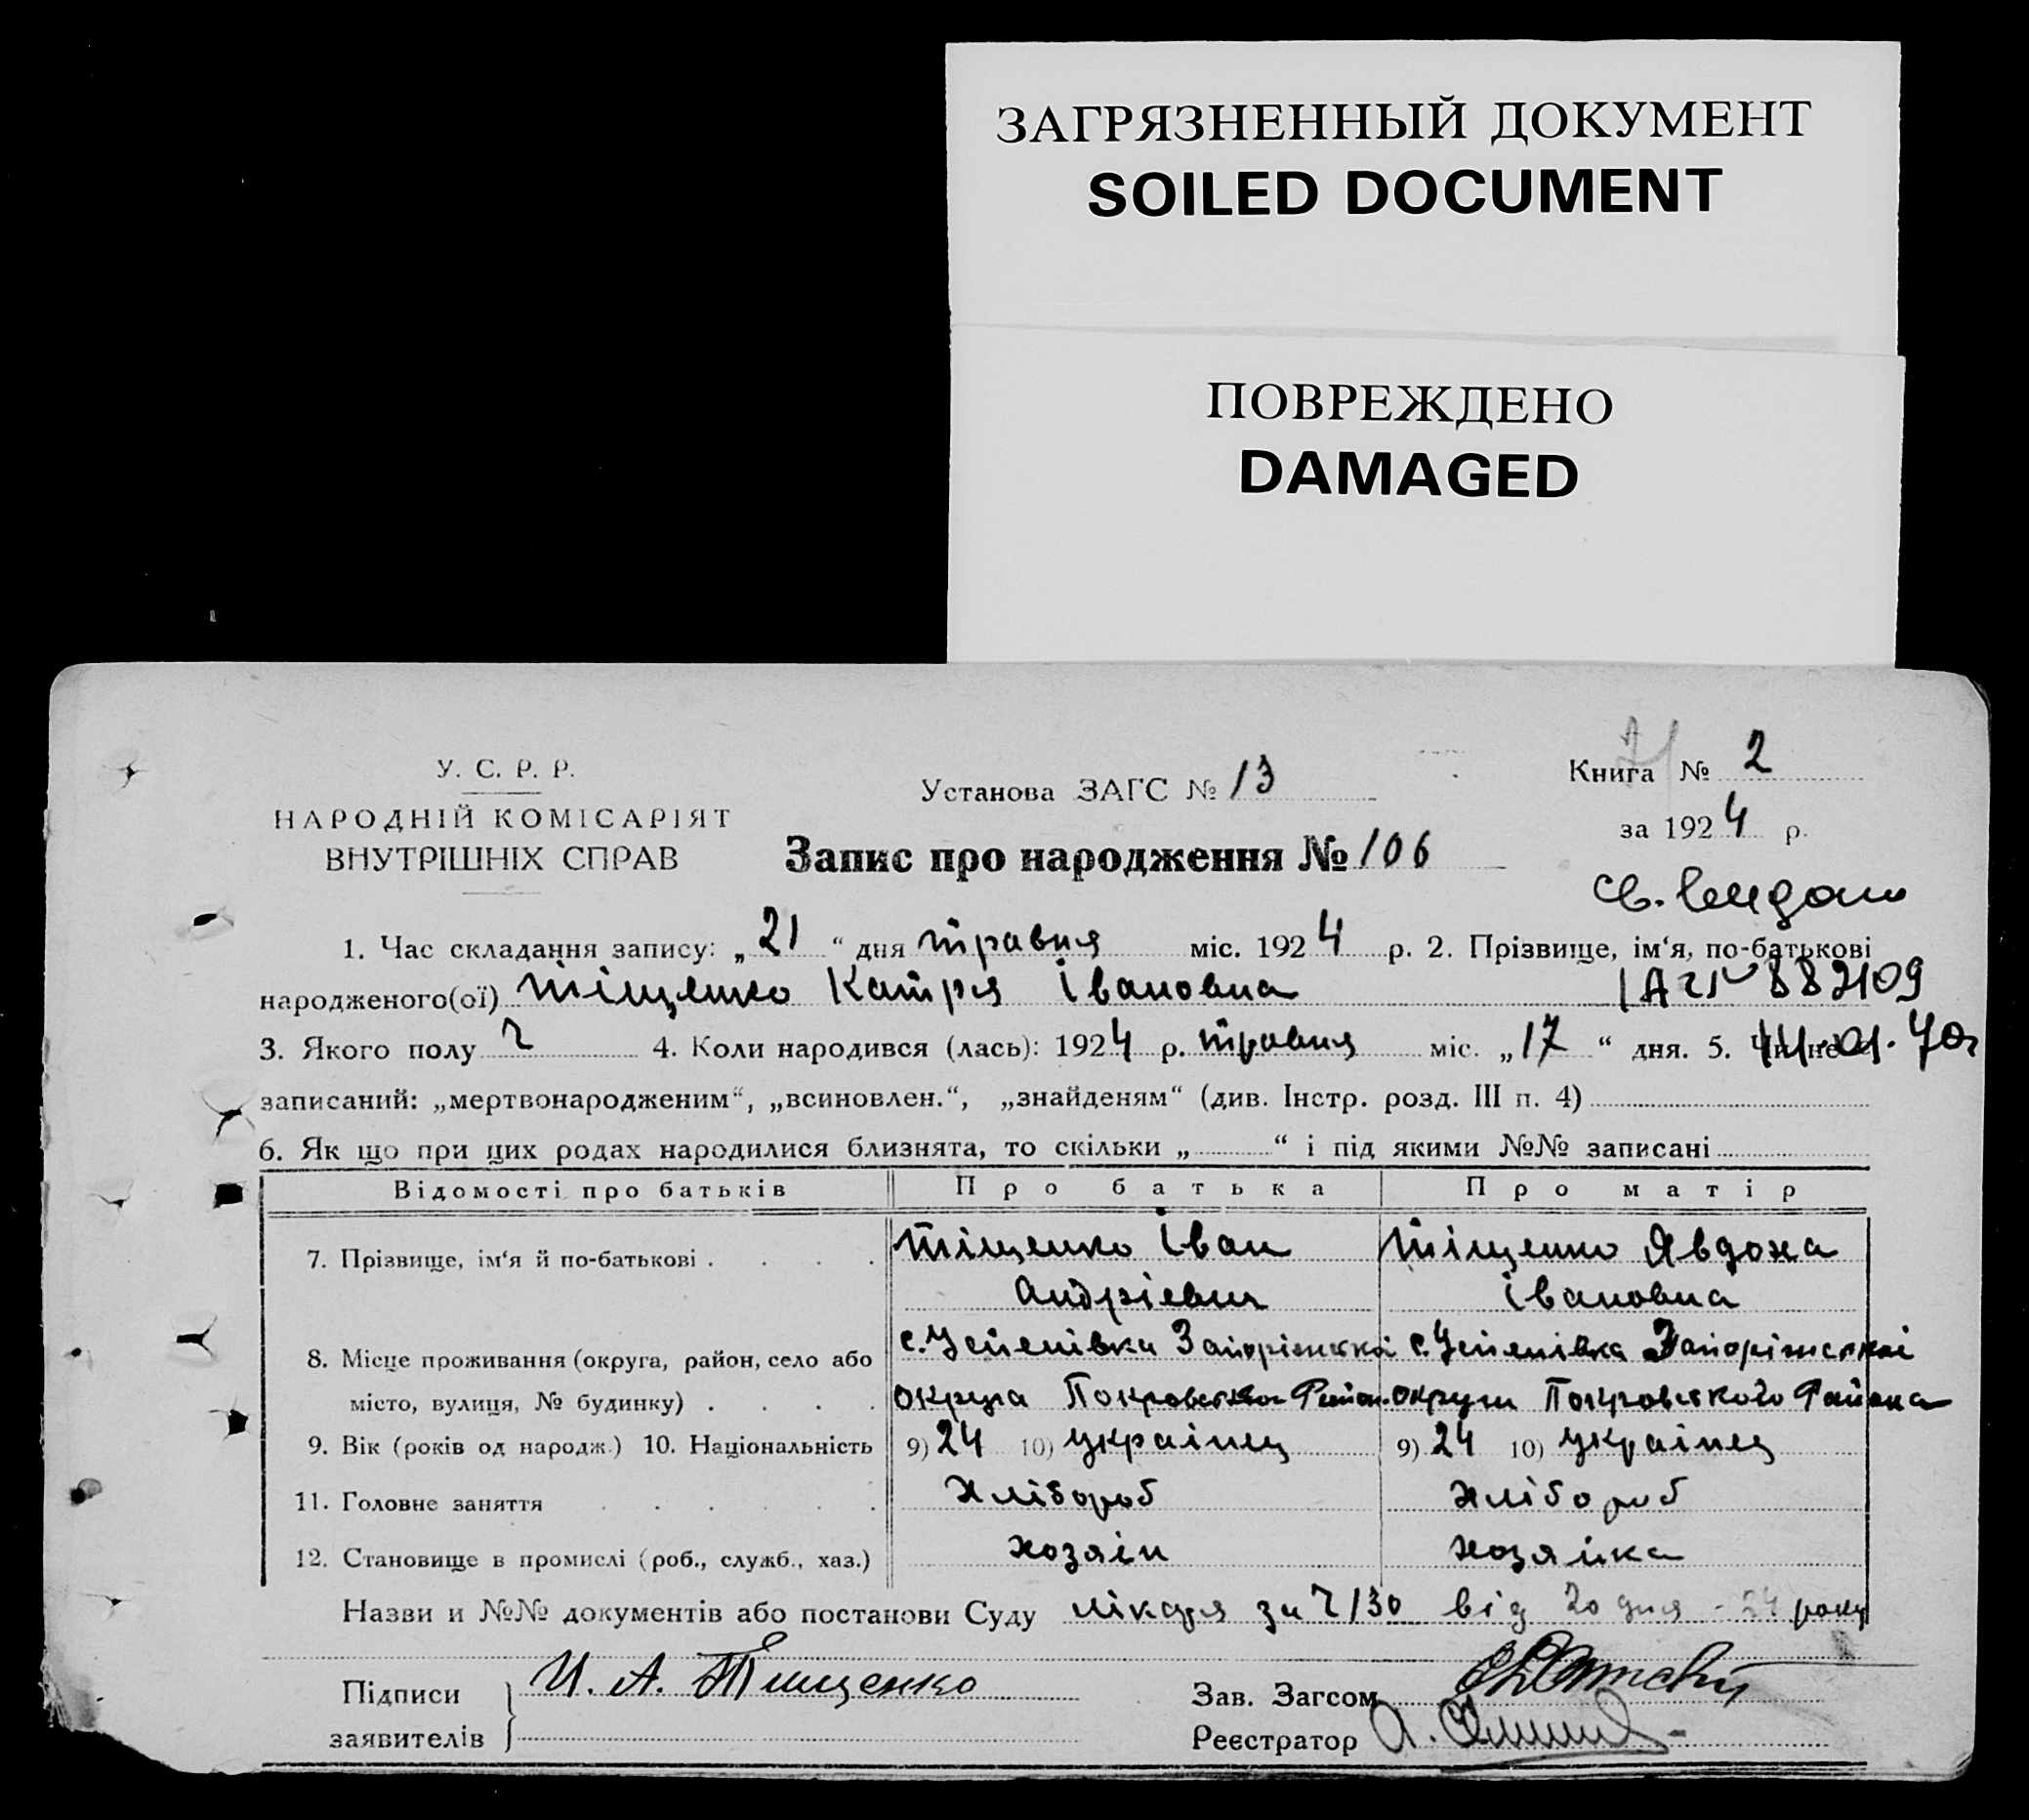 ЗАГРЯЗНЕННЫЙ ДОКУМЕНТ
SOILED DOCUMENT
ПОВРЕЖДЕНО
DAMAGED
У. С. Р. Р.
НАРОДНІЙ КОМІСАРІЯТ
ВНУТРІШНІХ СПРАВ
Установа ЗАГС № 13
Книга № 2
за 1924 р.
Запис про народження № 106
1. Час складання запису: „21“ дня травня міс. 1924 р. 2. Прізвище, ім‘я, по-батькові
народженого(ої) Тіщенко Катря Івановна
3. Якого полу 4. Коли народився (лась): 1924 р. травня міс. „17“ дня. 5. Чи не
записаний: „мертвонародженим“, „всиновлен.“, „знайденям“ (див. Інстр. розд. III п. 4)
6. Як що при цих родах народилися близнята, то скільки „ “ і під якими №№ записані
Відомості про батьків Про батька Про матір
7. Прізвище, ім‘я й по-батькові . . . . Тіщенко Іван Тіщенко Явдоха
Андрієвич Івановна
8. Місце проживання (округа, район, село або с. Успенівка Запоріжскоі с. Успенівка Запоріжскоі
місто, вулиця, № будинку) . . . . Округа Покровского Район. Округи Покровського Района
9. Вік (років од народж.) 10. Національність 9) 24 10) Украінец 9) 24 10) Украінец
11. Головне заняття . . . . . . Хлібороб Хлібороб
12. Становище в промислі (роб., служб., хаз.) хозяін хозяйка
Назви и №№ документів або постанови Суду лікаря за 130 від 20 дня - 24 року
Підписи И. А. Тищенко Зав. Загсом
заявителів Реєстратор